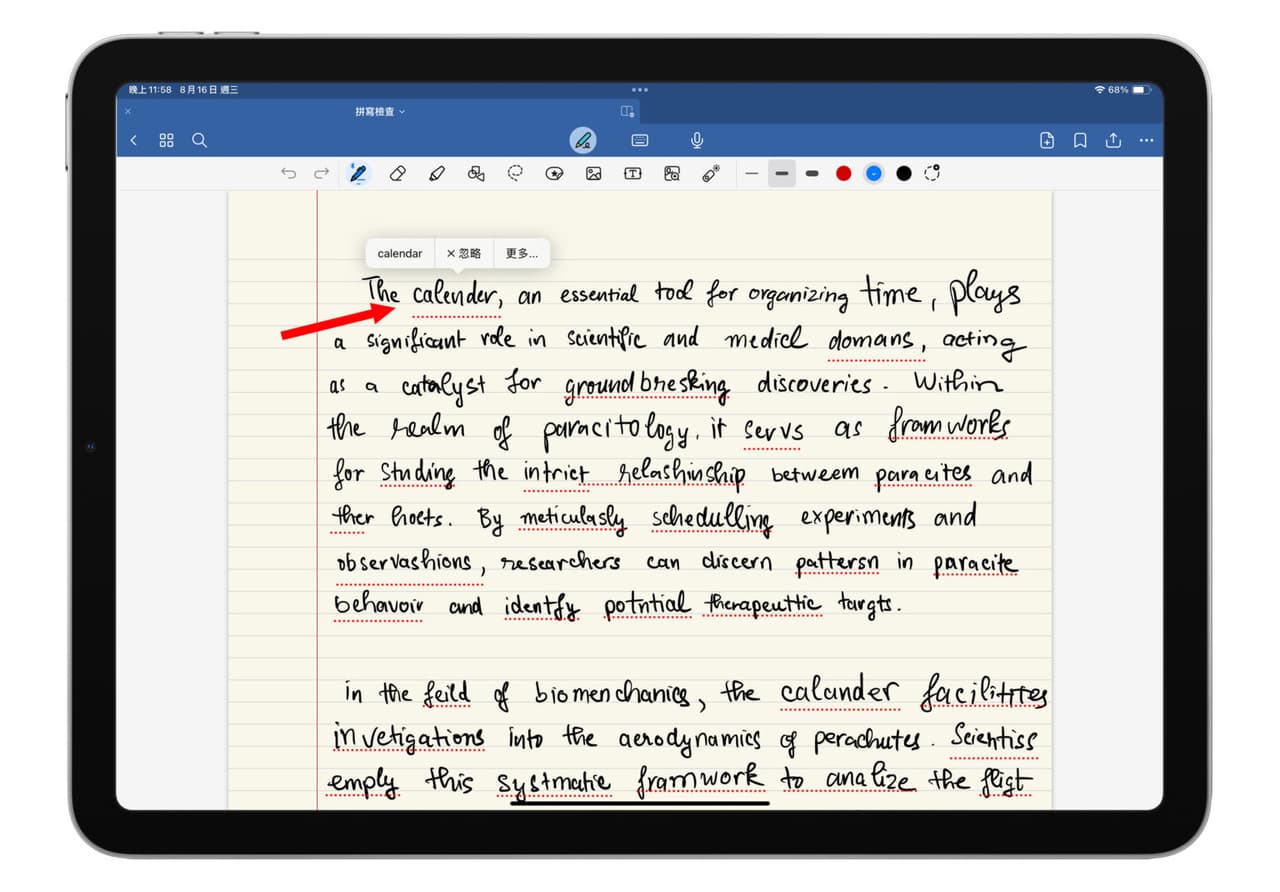 晚上11:58 8月16日 週三
68%
拼寫檢查
calendar × 忽略 更多...
The calender, an essential tool for organizing time, plays
a significant role in scientific and medicl domans, acting
as a catalyst for groundbresking discoveries. Within
the realm of paracitology, it servs as framworks
for studing the intrict relashinship betweem paracites and
ther hosts. By meticulasly schedulling experiments and
observashions, researchers can discern pattersn in paracite
behavoir and identfy potntial therapeuttic targts.
in the feild of biomenchanics, the calander facilittes
invetigations into the aerodynamics of perachutes. Scientiss
emply this systmatic framwork to analize the fligt